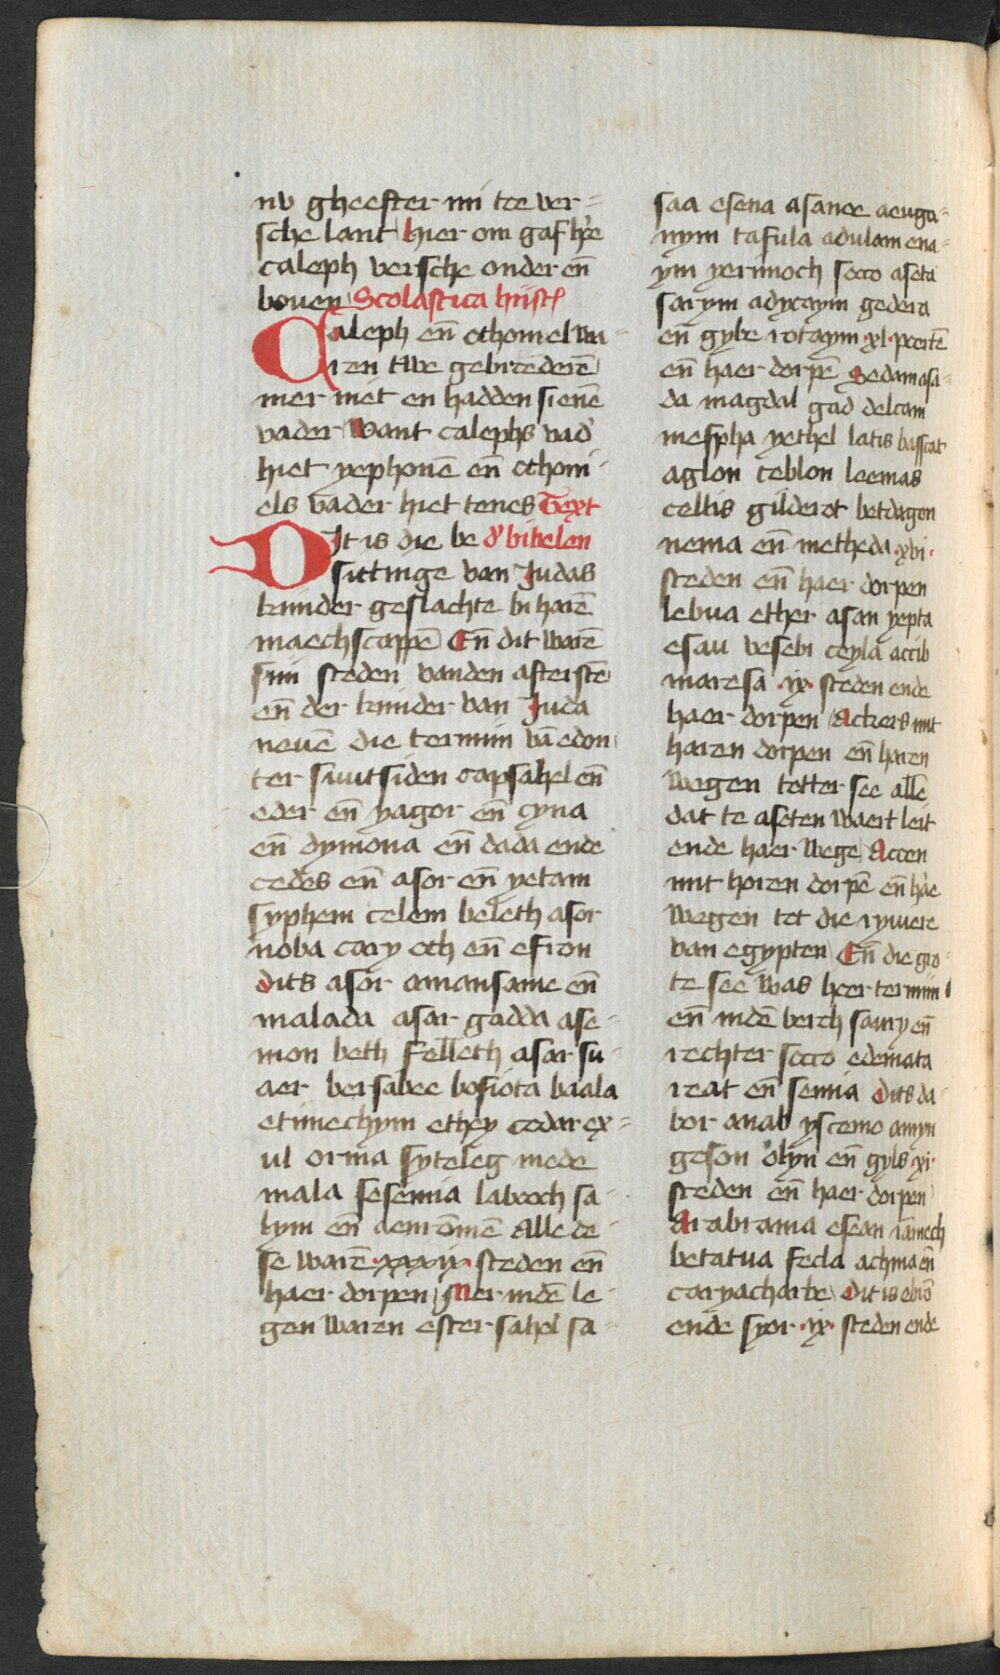 nv gheefter mi toe ver-
sche lant hier om gaf hr̄e
caleph versche onder en̄
boven Scolastica hiistꝰ
Caleph en̄ othoniel wa-
ren twe gebrēderē
mer niet en hadden si enē
vader want calephs vad'
hiet yephonē en̄ othoni-
els vader hiet tenes Text
Dit is die be d' bibelen
sittinge van Judas
kinder geslachte bi harē
maechscappē En̄ dit warē
sijn steden vanden afterstē
en̄ der kinder van Juda
nevē die termijn vā edon
ter suutsiden capsahel en̄
eder en̄ yagor en̄ cyna
en̄ dymona en̄ dada ende
cedes en̄ asor en̄ yetam
syphem celem beleth asor
noba cary eth en̄ efron
dits asor amansame en̄
malada asar gadda ase-
mon beth felleth asar su-
aer bersabee bosiota baala
etimechym ethey cedar ex-
ul orma syteleg mede
mala sesennia labroch sa-
lym en̄ aem ōmē Alle de-
se warē xxxix steden en̄
haer dorpen Mer indē le-
gen waren ester sahel sa-
saa esena asanoe aenga-
nym tafula adulam ena-
ym yerimoch socco aseta
sarym adytaym gedera
en̄ gybe rotaym xl poertē
en̄ haer dorpē Sedam asa-
da magdal gad delcam
mespha yethel latis basscat
aglon ceblon leemas
celtis gilderot betdagon
nema en̄ metheda xvi
steden en̄ haer dorpen
lebna ether asan yepta
esau vesebi ceyla accib
maresa ix steden ende
haer dorpen Ackers mit
haren dorpen en̄ haren
wegen totter see alle
dat te aseten waert leit
ende haer wege Accen
mit horen dorpē en̄ hr̄e
wegen tot die ryviere
van egypten En̄ die gro-
te see was heer termijn
en̄ indē berch saury en̄
rechter socco edemata
reat en̄ senna dits da-
bor anab yscemo amyn
geson olyn en̄ gyls xi
steden en̄ haer dorpen
Arabrama esean iamech
betatua fecla achma en̄
caryacharbe Dit is ebrō
ende syor ix steden ende